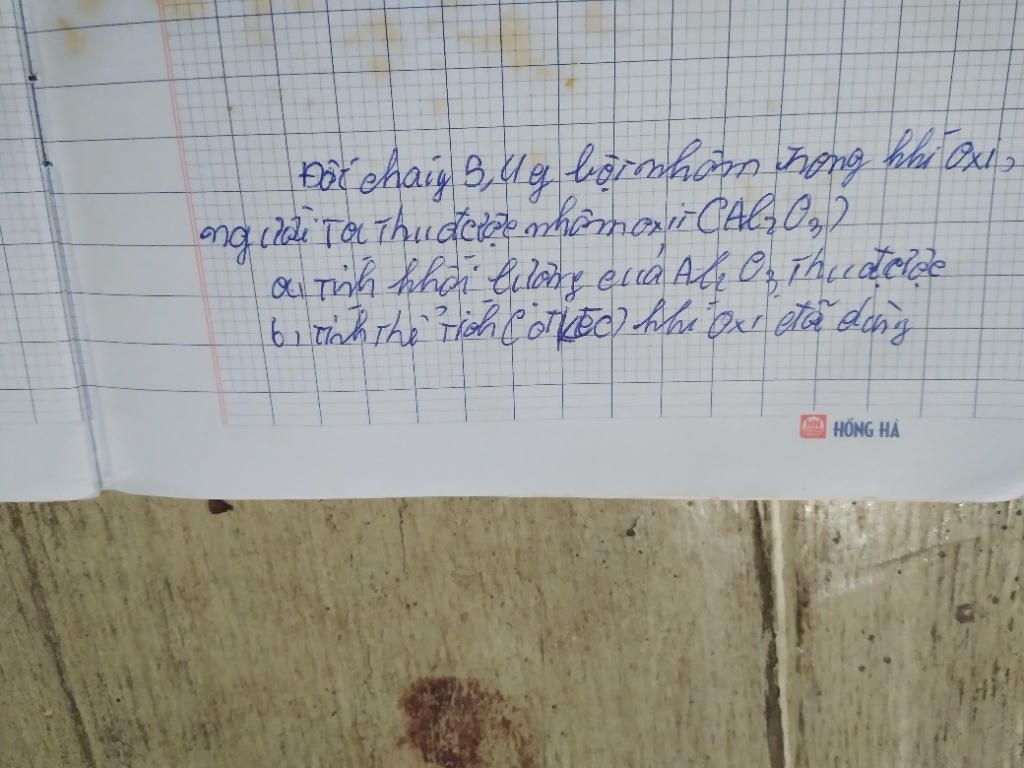 Đốt cháy 5,4g bột nhôm trong khí oxi,
người ta thu được nhôm oxit (Al₂O₃)
a, tính khối lượng của Al₂O₃ thu được
b, tính thể tích (ở đktc) khí oxi đã dùng
HN HỒNG HÀ